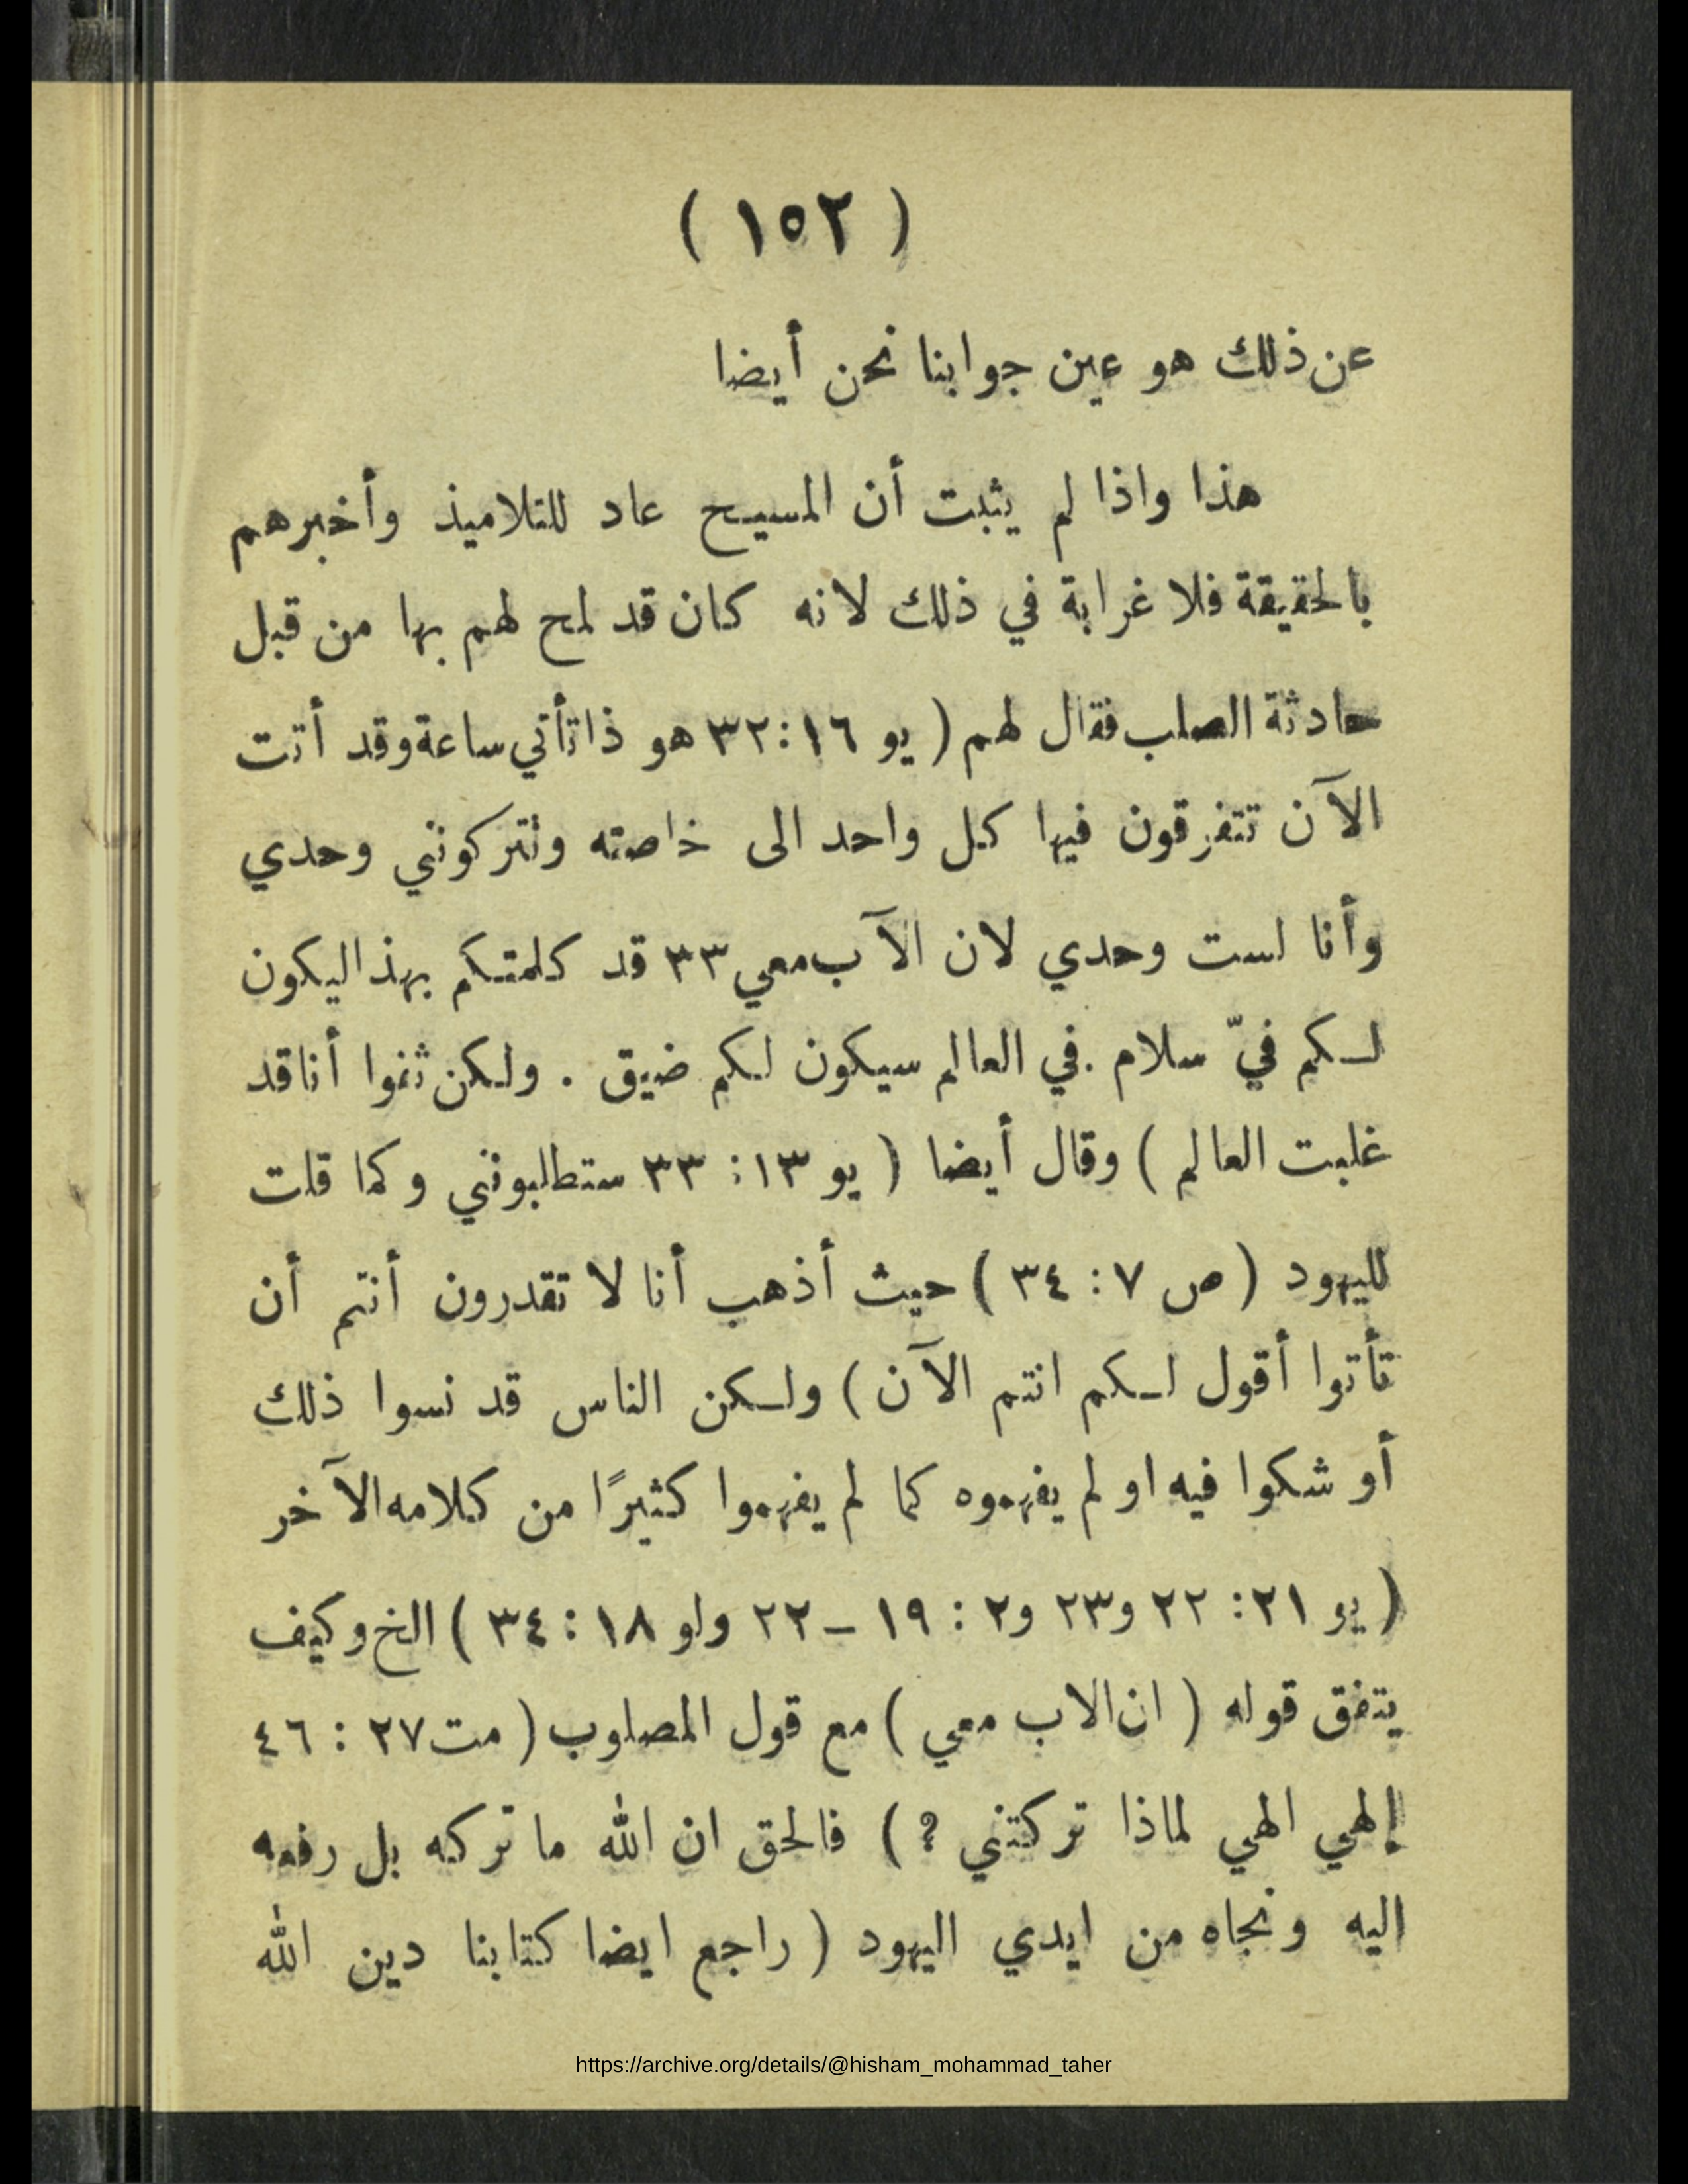 ( ١٥٢ )
عن ذلك هو عين جوابنا نحن أيضا
هذا واذا لم يثبت أن المسيح عاد للتلاميذ وأخبرهم
بالحقيقة فلا غرابة في ذلك لانه كان قد لمح لهم بها من قبل
حادثة الصلب فقال لهم ( يو ١٦:٣٢ هو ذا تأتي ساعة وقد أتت
الآن تتفرقون فيها كل واحد الى خاصته وتتركونني وحدي
وأنا لست وحدي لان الآب معي ٣٣ قد كلمتكم بهذا ليكون
لكم فيّ سلام . في العالم سيكون لكم ضيق . ولكن ثقوا أنا قد
غلبت العالم ) وقال أيضا ( يو ١٣: ٣٣ ستطلبونني وكما قلت
لليهود ( ص ٧: ٣٤ ) حيث أذهب أنا لا تقدرون أنتم أن
تأتوا أقول لكم انتم الآن ) ولكن الناس قد نسوا ذلك
أو شكوا فيه او لم يفهموه كما لم يفهموا كثيرًا من كلامه الآخر
( يو ٢١: ٢٢ و٢٣ و٢ : ١٩ – ٢٢ ولو ١٨: ٣٤ ) الخ وكيف
يتفق قوله ( ان الاب معي ) مع قول المصلوب ( مت ٢٧ : ٤٦
إلهي الهي لماذا تركتني ؟ ) فالحق ان الله ما تركه بل رفعه
اليه ونجاه من ايدي اليهود ( راجع ايضا كتابنا دين الله
https://archive.org/details/@hisham_mohammad_taher